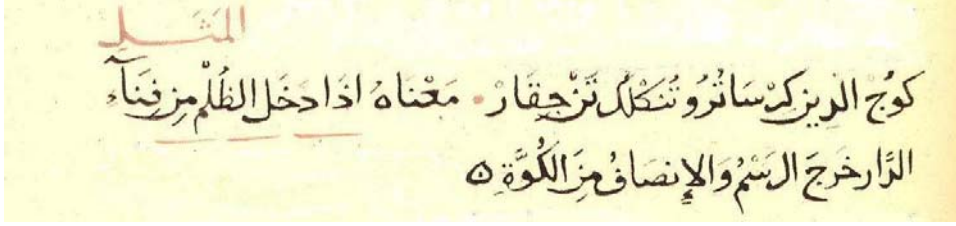 المَثَل
كوُجْ الدين كِرْسَا تُرُو تُنكْلُك تَنْ جِقَارْ • مَعْنَاهُ اذَا دَخَل الظُلْم مِن فِنَآءِ
الدَّار خَرجَ الرَسْمُ وَالإِنصَافُ مِنَ الكُوَّةِ ه